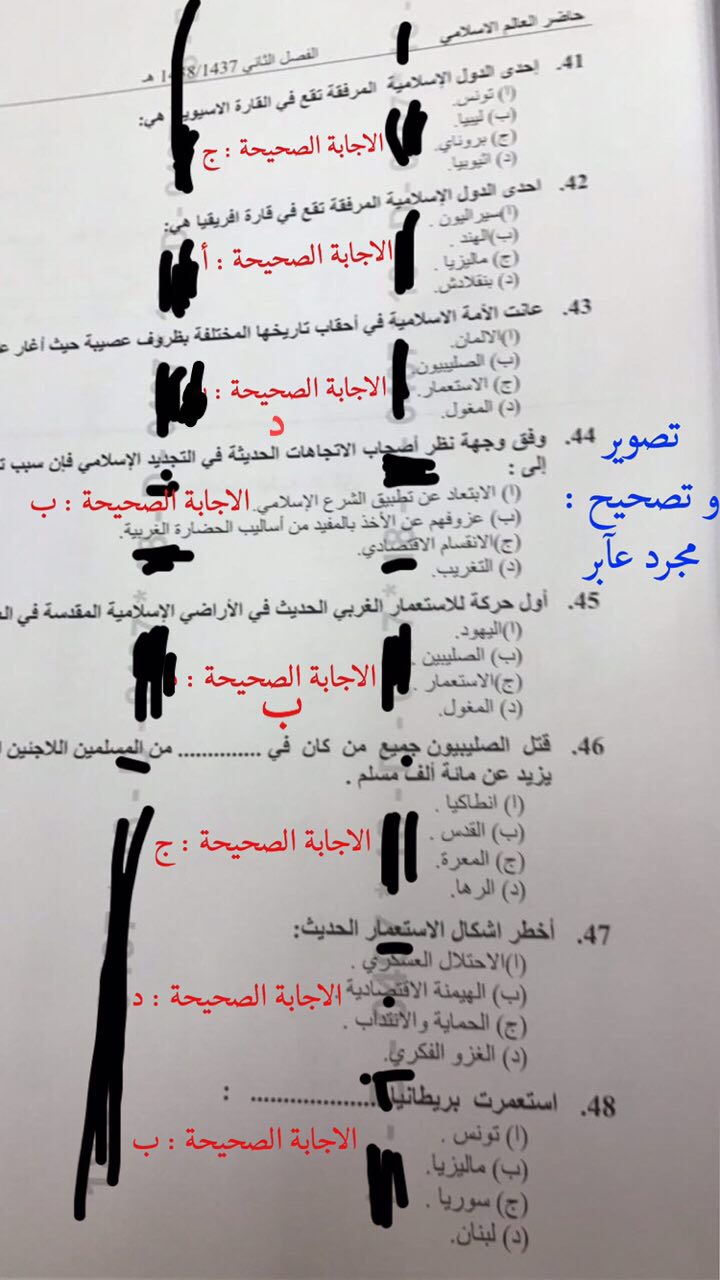 حاضر العالم الاسلامي
الفصل الثاني 1438/1437 هـ
41. إحدى الدول الإسلامية المرفقة تقع في القارة الاسيوية هي:
(ا) تونس.
(ب) ليبيا.
(ج) بروناي.
(د) اثيوبيا.
الاجابة الصحيحة : ج
42. احدى الدول الإسلامية المرفقة تقع في قارة افريقيا هي:
(ا)سيراليون .
(ب)الهند .
(ج) ماليزيا .
(د) بنقلادش.
الاجابة الصحيحة : أ
43. عانت الأمة الاسلامية في أحقاب تاريخها المختلفة بظروف عصيبة حيث أغار
(ا)الالمان.
(ب) الصليبيون.
(ج) الاستعمار.
(د) المغول.
الاجابة الصحيحة :
د
44. وفق وجهة نظر أصحاب الاتجاهات الحديثة في التجديد الإسلامي فإن سبب
إلى :
(ا) الابتعاد عن تطبيق الشرع الإسلامي.
(ب) عزوفهم عن الأخذ بالمفيد من أساليب الحضارة الغربية.
(ج)الانقسام الاقتصادي.
(د) التغريب.
الاجابة الصحيحة : ب
تصوير
و تصحيح :
مجرد عآبر
45. أول حركة للاستعمار الغربي الحديث في الأراضي الإسلامية المقدسة في
(ا)اليهود.
(ب) الصليبين .
(ج)الاستعمار .
(د) المغول.
الاجابة الصحيحة :
ب
46. قتل الصليبيون جميع من كان في .............. من المسلمين اللاجئين
يزيد عن مائة ألف مسلم .
(ا) انطاكيا .
(ب) القدس .
(ج) المعرة.
(د) الرها.
الاجابة الصحيحة : ج
47. أخطر اشكال الاستعمار الحديث:
(ا)الاحتلال العسكري .
(ب) الهيمنة الاقتصادية
(ج) الحماية والانتداب .
(د) الغزو الفكري.
الاجابة الصحيحة : د
48. استعمرت بريطانيا .................... :
(ا) تونس .
(ب) ماليزيا.
(ج) سوريا .
(د) لبنان.
الاجابة الصحيحة : ب